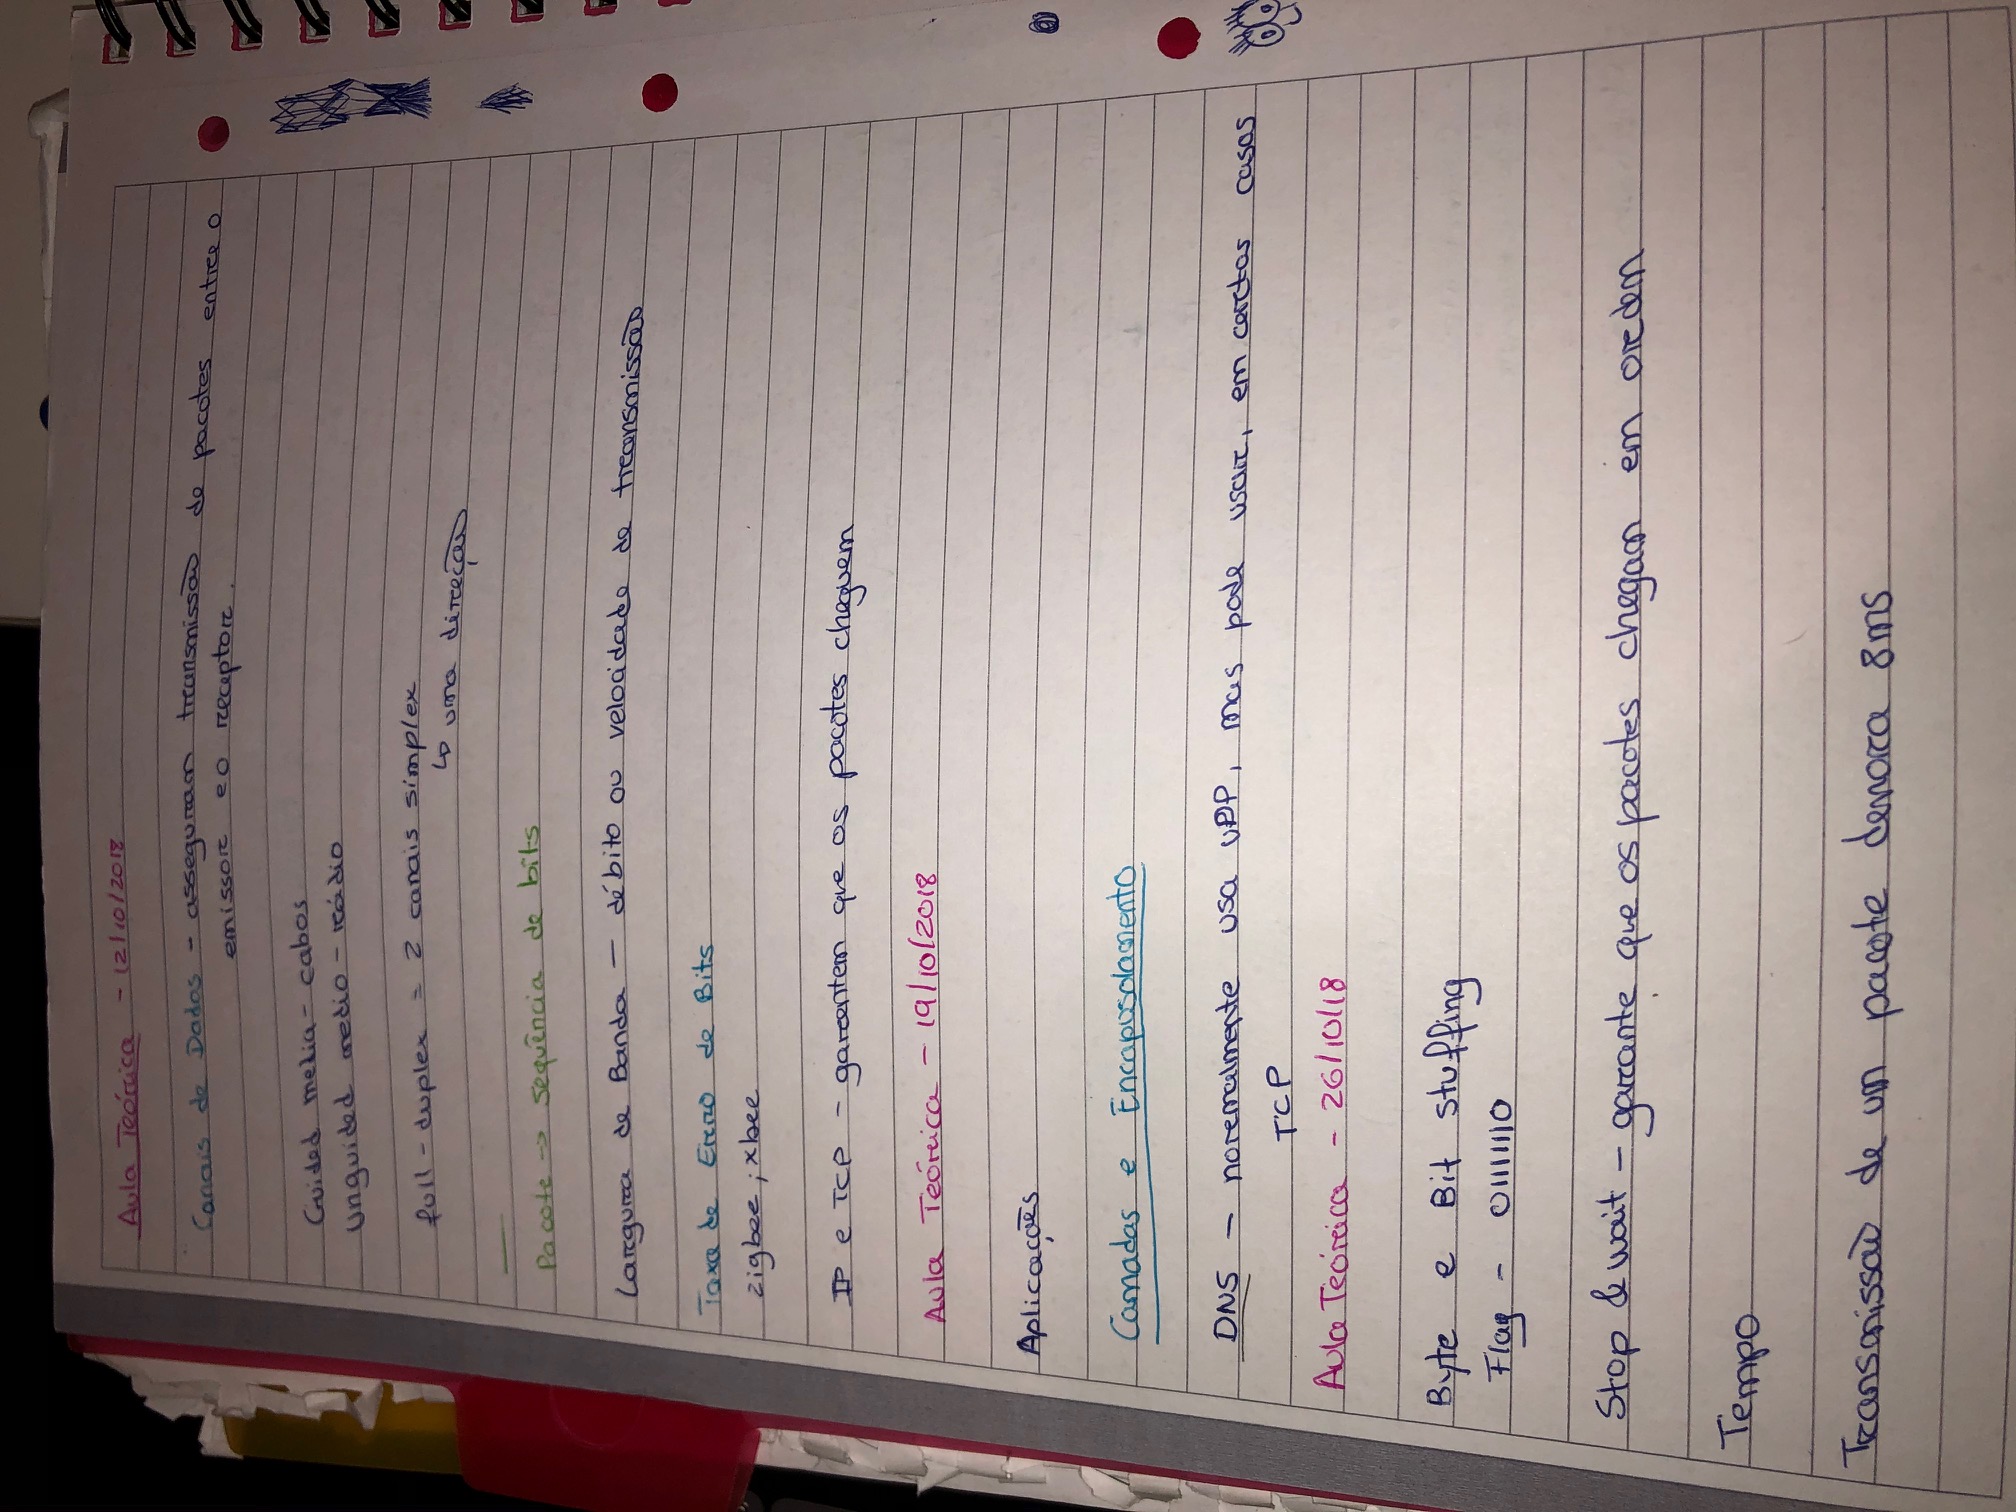 Aula Teórica - 12/10/2018
Canais de Dados - asseguram transmissão de pacotes entre o
emissor e o receptor.
Guided media - cabos
Unguided medio - rádio
full-duplex = 2 canais simplex
↳ uma direção
Pacote -> sequência de bits
Largura de Banda - débito ou velocidade de transmissão
Taxa de Erro de Bits
zigbee ; xbee
IP e TCP - garantem que os pacotes cheguem
Aula Teórica - 19/10/2018
Aplicações
Camadas e Encapusolamento
DNS - normalmente usa UDP, mas pode usar, em certos casos
TCP
Aula Teórica - 26/10/18
Byte e Bit stuffing
Flag - 01111110
Stop & wait - garante que os pacotes chegam em ordem
Tempo
Transmissão de um pacote demora 8ms